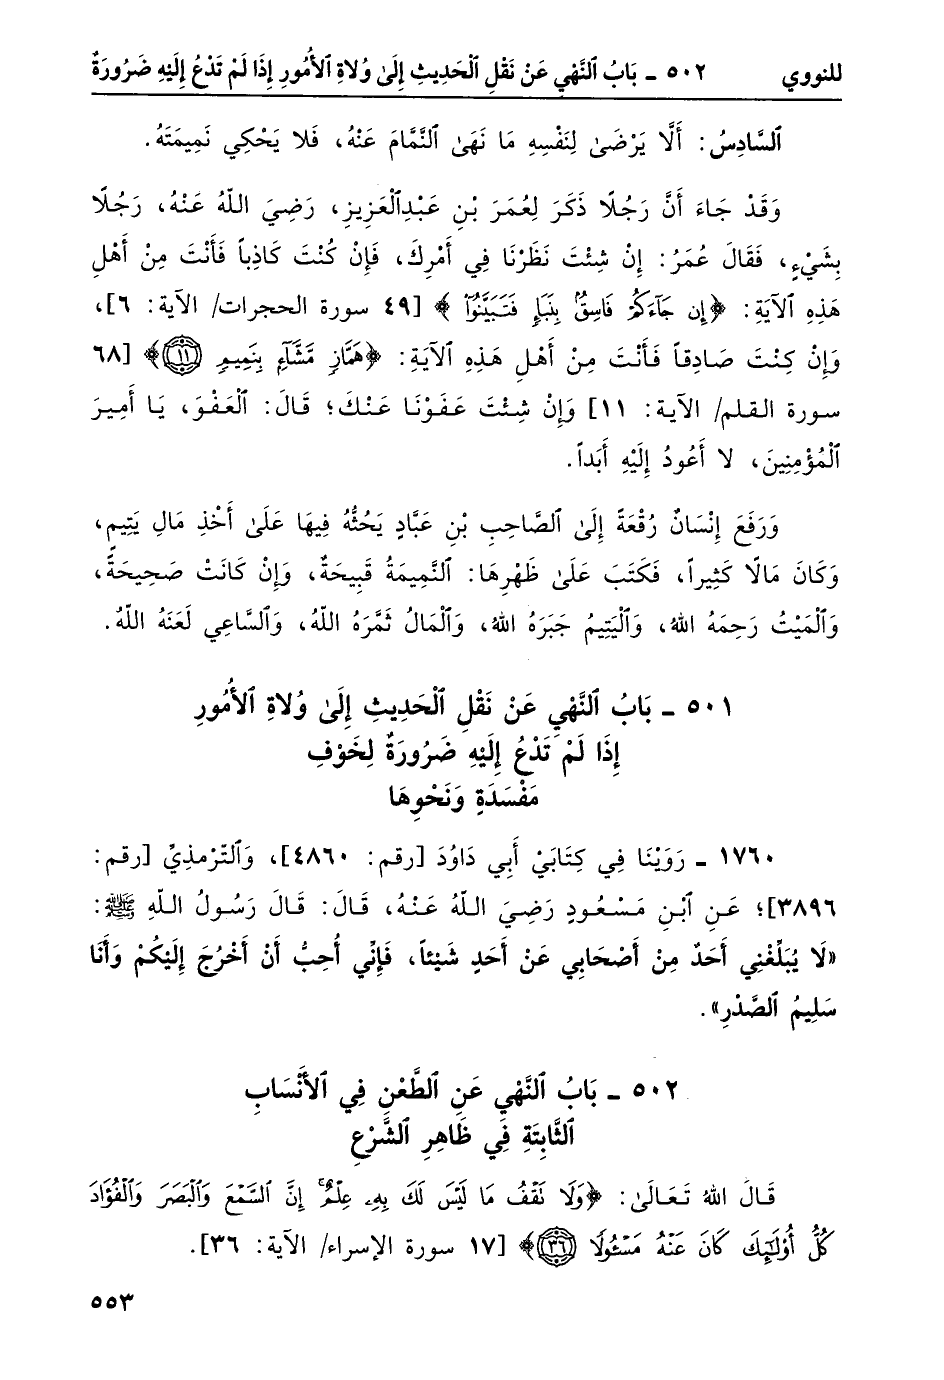 للنووي ٥٠٢ ـ بَابُ ٱلنَّهْيِ عَنْ نَقْلِ ٱلْحَدِيثِ إِلَىٰ وُلاةِ ٱلأُمُورِ إِذَا لَمْ تَدْعُ إِلَيْهِ ضَرُورَةٌ
ٱلسَّادِسُ: أَلَّا يَرْضَىٰ لِنَفْسِهِ مَا نَهَىٰ ٱلنَّمَّامَ عَنْهُ، فَلا يَحْكِي نَمِيمَتَهُ.
وَقَدْ جَاءَ أَنَّ رَجُلًا ذَكَرَ لِعُمَرَ بْنِ عَبْدِٱلْعَزِيزِ، رَضِيَ اللّهُ عَنْهُ، رَجُلًا
بِشَيْءٍ، فَقَالَ عُمَرُ: إِنْ شِئْتَ نَظَرْنَا فِي أَمْرِكَ، فَإِنْ كُنْتَ كَاذِباً فَأَنْتَ مِنْ أَهْلِ
هَذِهِ ٱلآيَةِ: ﴿إِن جَآءَكُمْ فَاسِقٌۢ بِنَبَإٍ فَتَبَيَّنُوٓا۟﴾ [٤٩ سورة الحجرات/ الآية: ٦]،
وَإِنْ كِنْتَ صَادِقاً فَأَنْتَ مِنْ أَهْلِ هَذِهِ ٱلآيَةِ: ﴿هَمَّازٍ مَّشَّآءٍۭ بِنَمِيمٍ ۝١١﴾ [٦٨
سورة القلم/ الآية: ١١] وَإِنْ شِئْتَ عَفَوْنَا عَنْكَ؛ قَالَ: ٱلْعَفْوَ، يَا أَمِيرَ
ٱلْمُؤْمِنِينَ، لا أَعُودُ إِلَيْهِ أَبَداً.
وَرَفَعَ إِنْسَانٌ رُقْعَةً إِلَىٰ ٱلصَّاحِبِ بْنِ عَبَّادٍ يَحُثُّهُ فِيهَا عَلَىٰ أَخْذِ مَالِ يَتِيمٍ،
وَكَانَ مَالًا كَثِيراً، فَكَتَبَ عَلَىٰ ظَهْرِهَا: ٱلنَّمِيمَةُ قَبِيحَةٌ، وَإِنْ كَانَتْ صَحِيحَةً،
وَٱلْمَيْتُ رَحِمَهُ اللهُ، وَٱلْيَتِيمُ جَبَرَهُ اللهُ، وَٱلْمَالُ ثَمَّرَهُ اللّهُ، وَٱلسَّاعِي لَعَنَهُ اللّهُ.
٥٠١ ـ بَابُ ٱلنَّهْيِ عَنْ نَقْلِ ٱلْحَدِيثِ إِلَىٰ وُلاةِ ٱلأُمُورِ
إِذَا لَمْ تَدْعُ إِلَيْهِ ضَرُورَةٌ لِخَوْفِ
مَفْسَدَةٍ وَنَحْوِهَا
١٧٦٠ ـ رَوَيْنَا فِي كِتَابَيْ أَبِي دَاوُدَ [رقم: ٤٨٦٠]، وَٱلتِّرْمذِيِّ [رقم:
٣٨٩٦]؛ عَنِ ٱبْنِ مَسْعُودٍ رَضِيَ اللّهُ عَنْهُ، قَالَ: قَالَ رَسُولُ اللّهِ ﷺ:
«لَا يُبَلِّغْنِي أَحَدٌ مِنْ أَصْحَابِي عَنْ أَحَدٍ شَيْئاً، فَإِنِّي أُحِبُّ أَنْ أَخْرُجَ إِلَيْكُمْ وَأَنَا
سَلِيمُ ٱلصَّدْرِ».
٥٠٢ ـ بَابُ ٱلنَّهْيِ عَنِ ٱلطَّعْنِ فِي ٱلأَنْسَابِ
ٱلثَّابِتَةِ فِي ظَاهِرِ ٱلشَّرْعِ
قَالَ اللهُ تَعَالَىٰ: ﴿وَلَا نَقْفُ مَا لَيْسَ لَكَ بِهِۦ عِلْمٌ ۚ إِنَّ ٱلسَّمْعَ وَٱلْبَصَرَ وَٱلْفُؤَادَ
كُلُّ أُو۟لَٰٓئِكَ كَانَ عَنْهُ مَسْـُٔولًا ۝٣٦﴾ [١٧ سورة الإسراء/ الآية: ٣٦].
٥٥٣